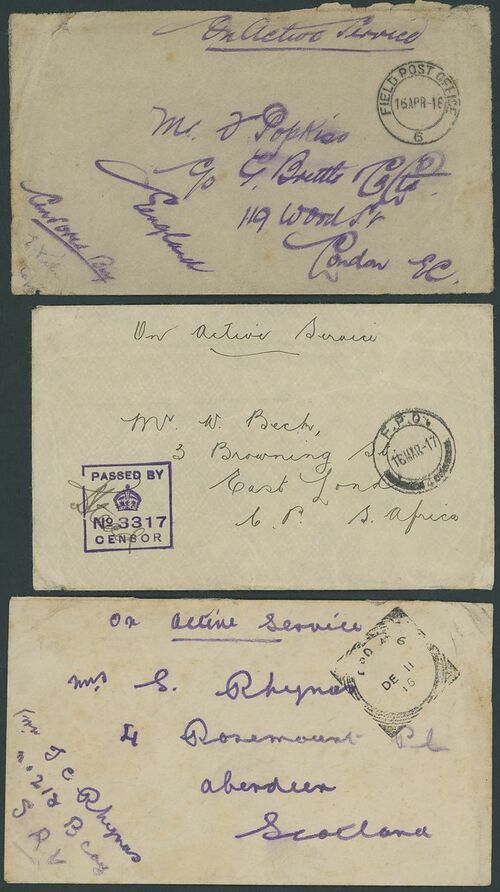 On Active Service
FIELD POST OFFICE
16 APR-16
6
Mr. J. Popkiss
c/o G. Brettle & Co Ltd.
119 Wood St
London EC.
England
Censored by
On Active Service
Mr. W. Beck,
3 Browning St
East Lond
C. P. S. Africa
F.P.O.
16 MAR-17
PASSED BY
No 3317
CENSOR
On Active Service
6
DE 11
16
Mrs S. Rhynas
4 Rosemount Pl
Aberdeen
Scotland
J C Rhynas
B coy